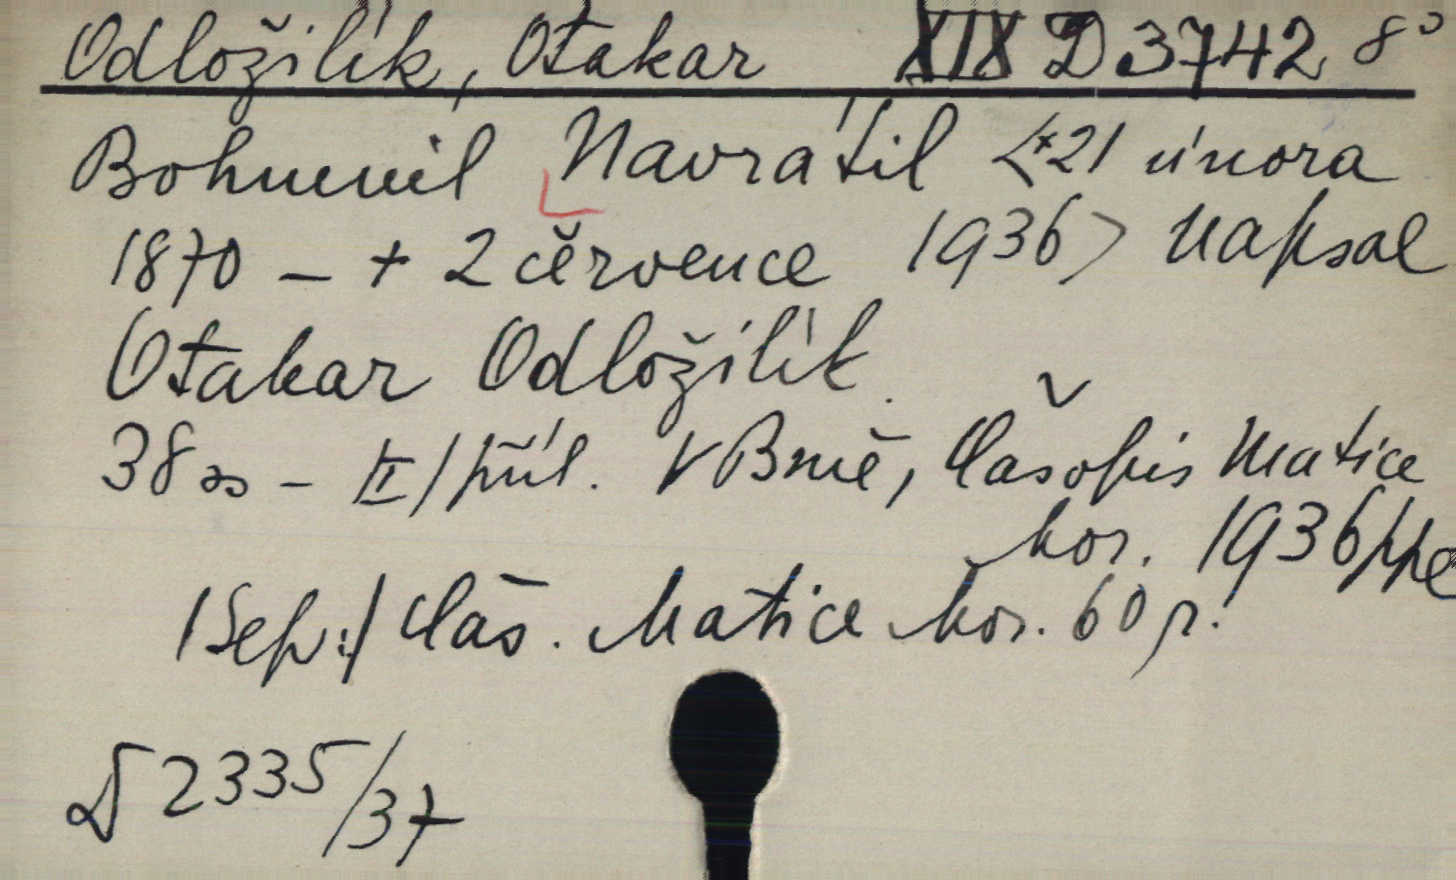 Odložilík, Otakar XIX D 3742 8°
Bohumil Navrátil <*21 února
1870 – + 2 července 1936> napsal
Otakar Odložilík.
38 ss – II/příl. V Brně, Časopis Matice
mor. 1936
/Sep:/ Čas. Matice mor. 60 r.
D 2335/37